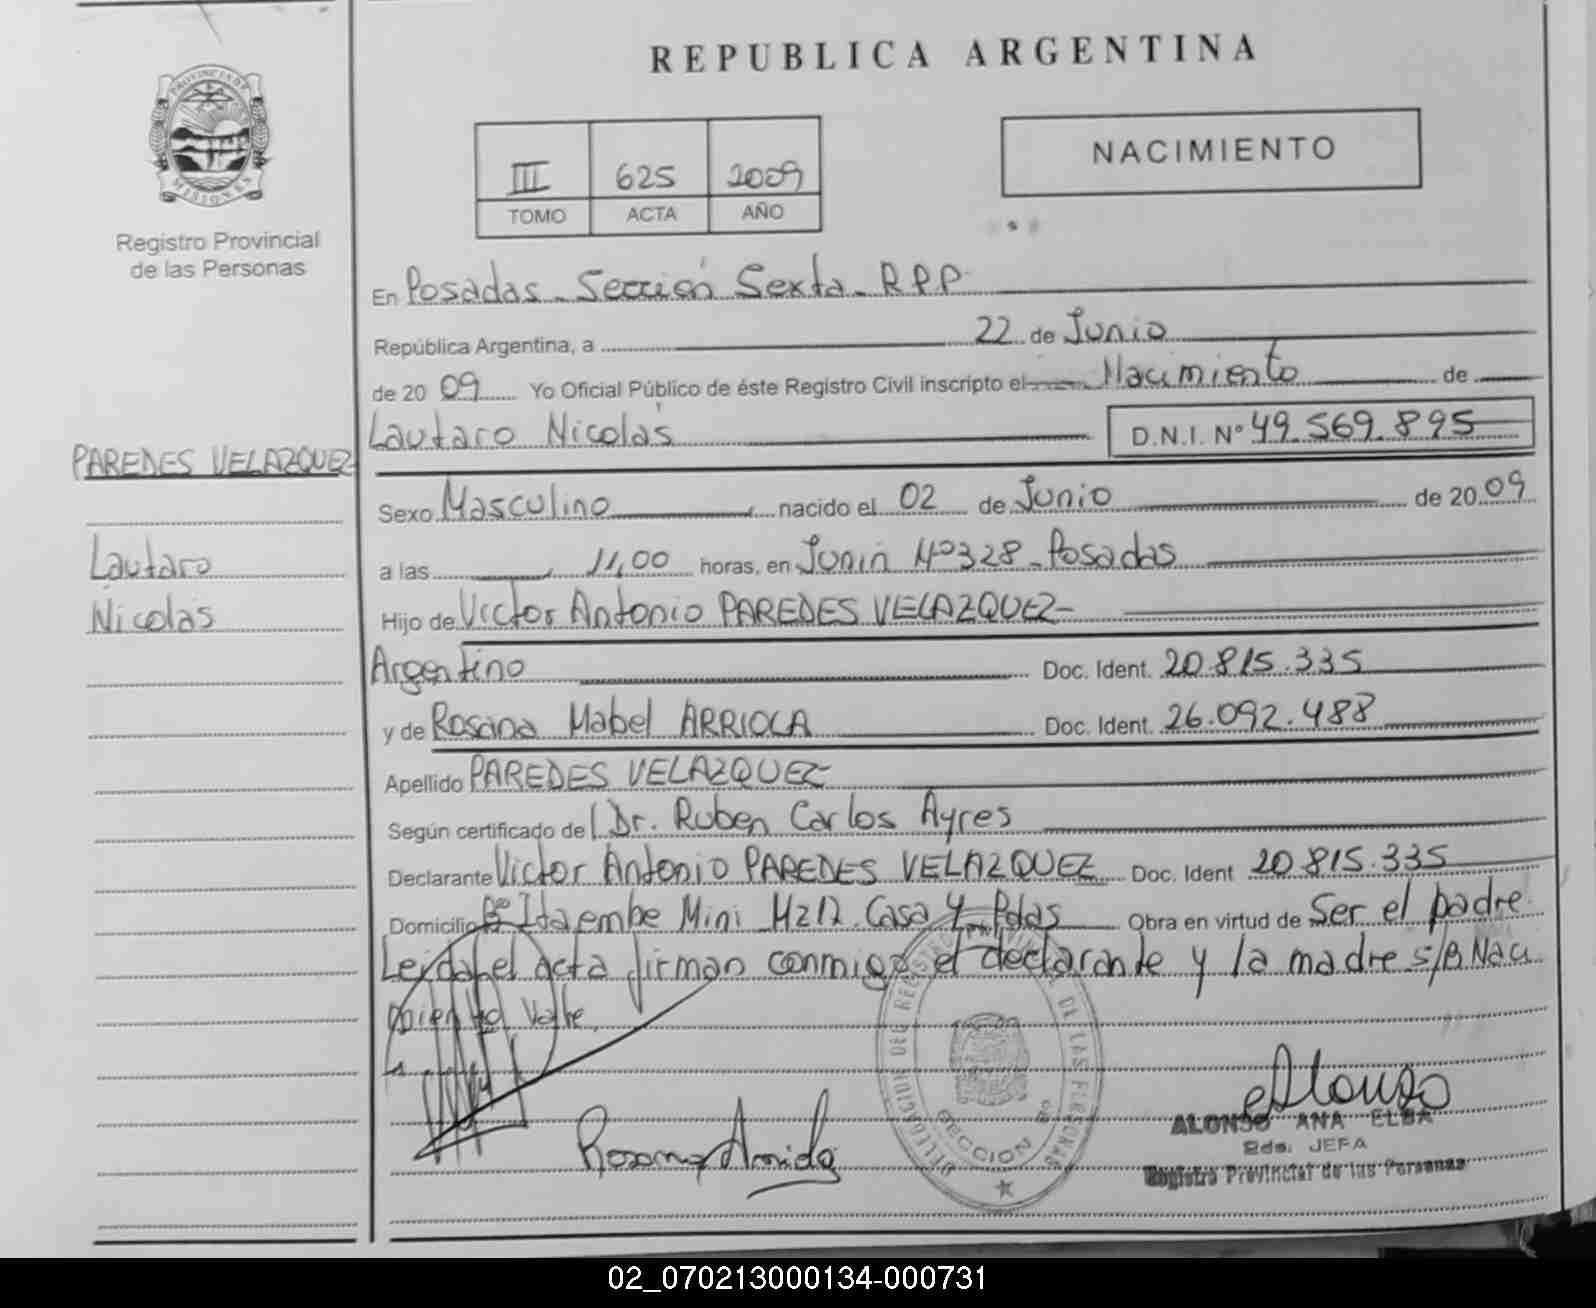 REPUBLICA ARGENTINA
PROVINCIA DE
MISIONES
Registro Provincial
de las Personas
III 625 2009
TOMO ACTA AÑO
NACIMIENTO
En Posadas - Sección Sexta - RPP
República Argentina, a 22 de Junio
de 20 09 Yo Oficial Público de éste Registro Civil inscripto el Nacimiento de
Lautaro Nicolás D.N.I. Nº 49.569.895
PAREDES VELAZQUEZ
Sexo Masculino nacido el 02 de Junio de 20 09
Lautaro
a las 11,00 horas, en Junin Nº 328 - Posadas
Nicolás
Hijo de Victor Antonio PAREDES VELAZQUEZ
Argentino Doc. Ident. 20.815.335
y de Rosana Mabel ARRIOLA Doc. Ident. 26.092.488
Apellido PAREDES VELAZQUEZ
Según certificado de Dr. Ruben Carlos Ayres
Declarante Victor Antonio PAREDES VELAZQUEZ Doc. Ident 20.815.335
Domicilio Bº Itaembe Mini Mz 12 Casa 4 Pdas Obra en virtud de Ser el padre
Leida el acta firman conmigo el declarante y la madre s/B Naci
miento Vale
DELEGACION DEL REGISTRO DE LAS PERSONAS
SECCION 6º
ALONSO ANA ELBA
Gda. JEFA
Registro Provincial de las Personas
02_070213000134-000731